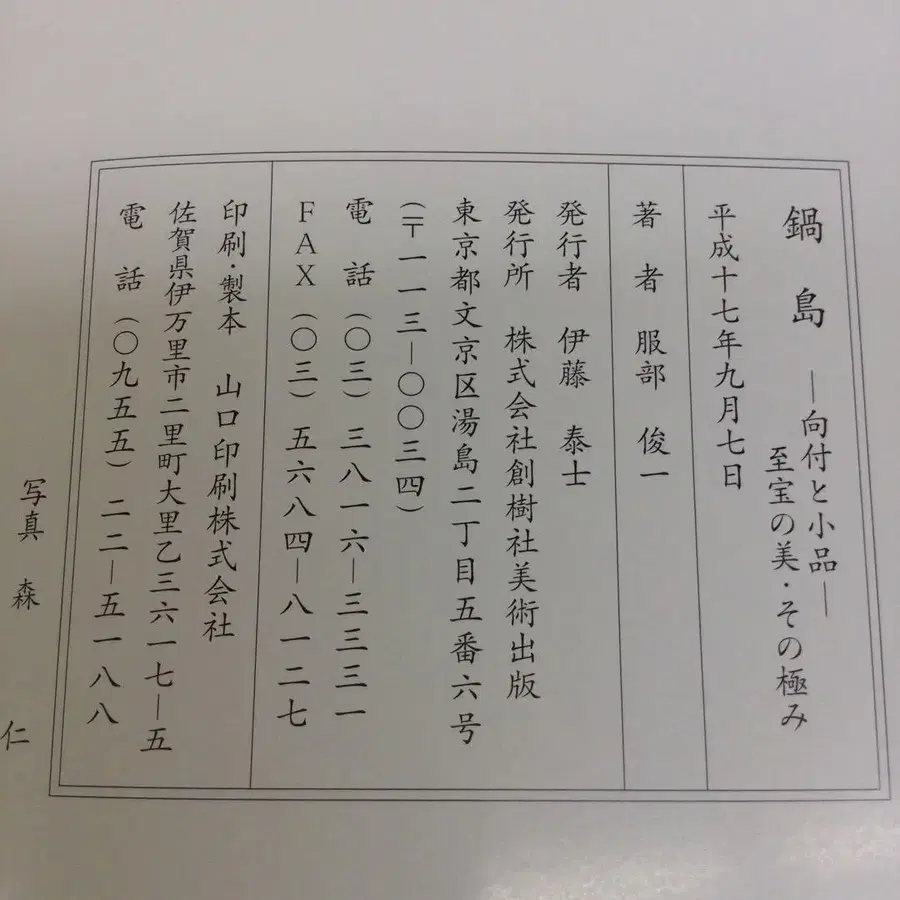 鍋島 ―向付と小品―
至宝の美・その極み
平成十七年九月七日
著者 服部 俊一
発行者 伊藤 泰士
発行所 株式会社創樹社美術出版
東京都文京区湯島二丁目五番六号
(〒一一三―〇〇三四)
電話(〇三)三八一六―三三三一
FAX(〇三)五六八四―八一二七
印刷・製本 山口印刷株式会社
佐賀県伊万里市二里町大里乙三六一七―五
電話(〇九五五)二二―五一八八
写真 森 仁